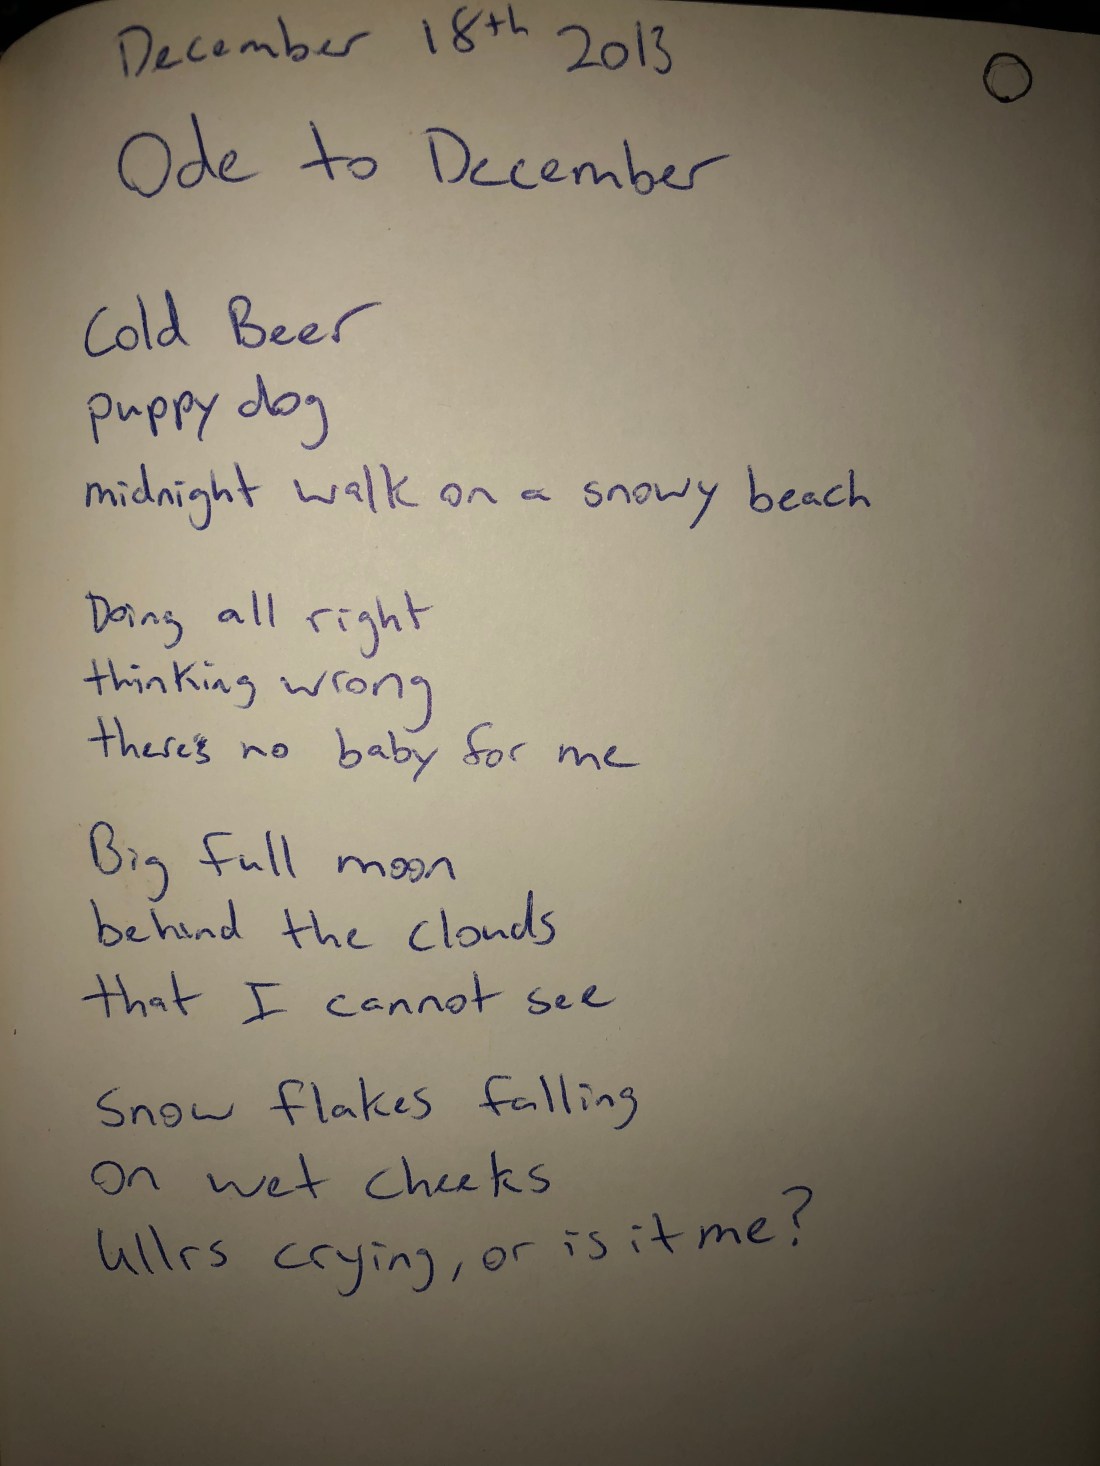 December 18th 2013
Ode to December
Cold Beer
puppy dog
midnight walk on a snowy beach
Doing all right
thinking wrong
there's no baby for me
Big full moon
behind the clouds
that I cannot see
Snow flakes falling
on wet cheeks
Ullrs crying, or is it me?